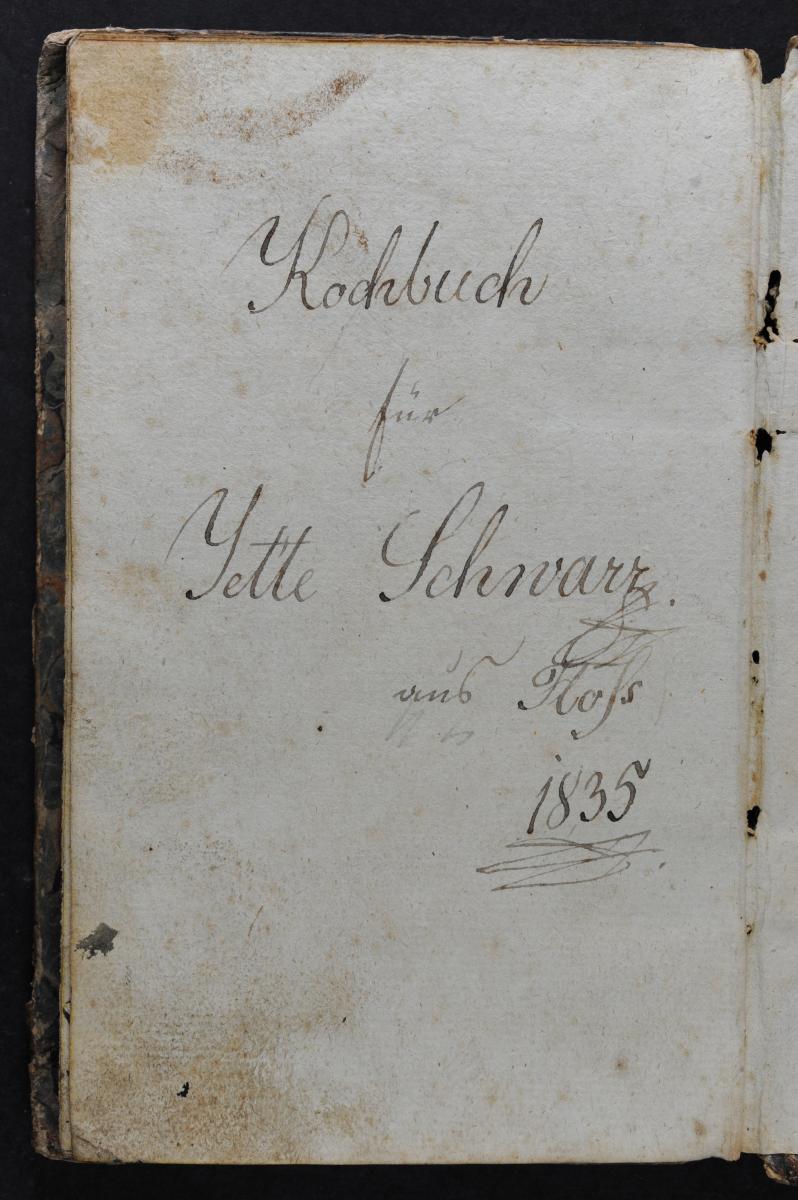 Kochbuch
für
Yette Schwarz.
aus Floſs
1835